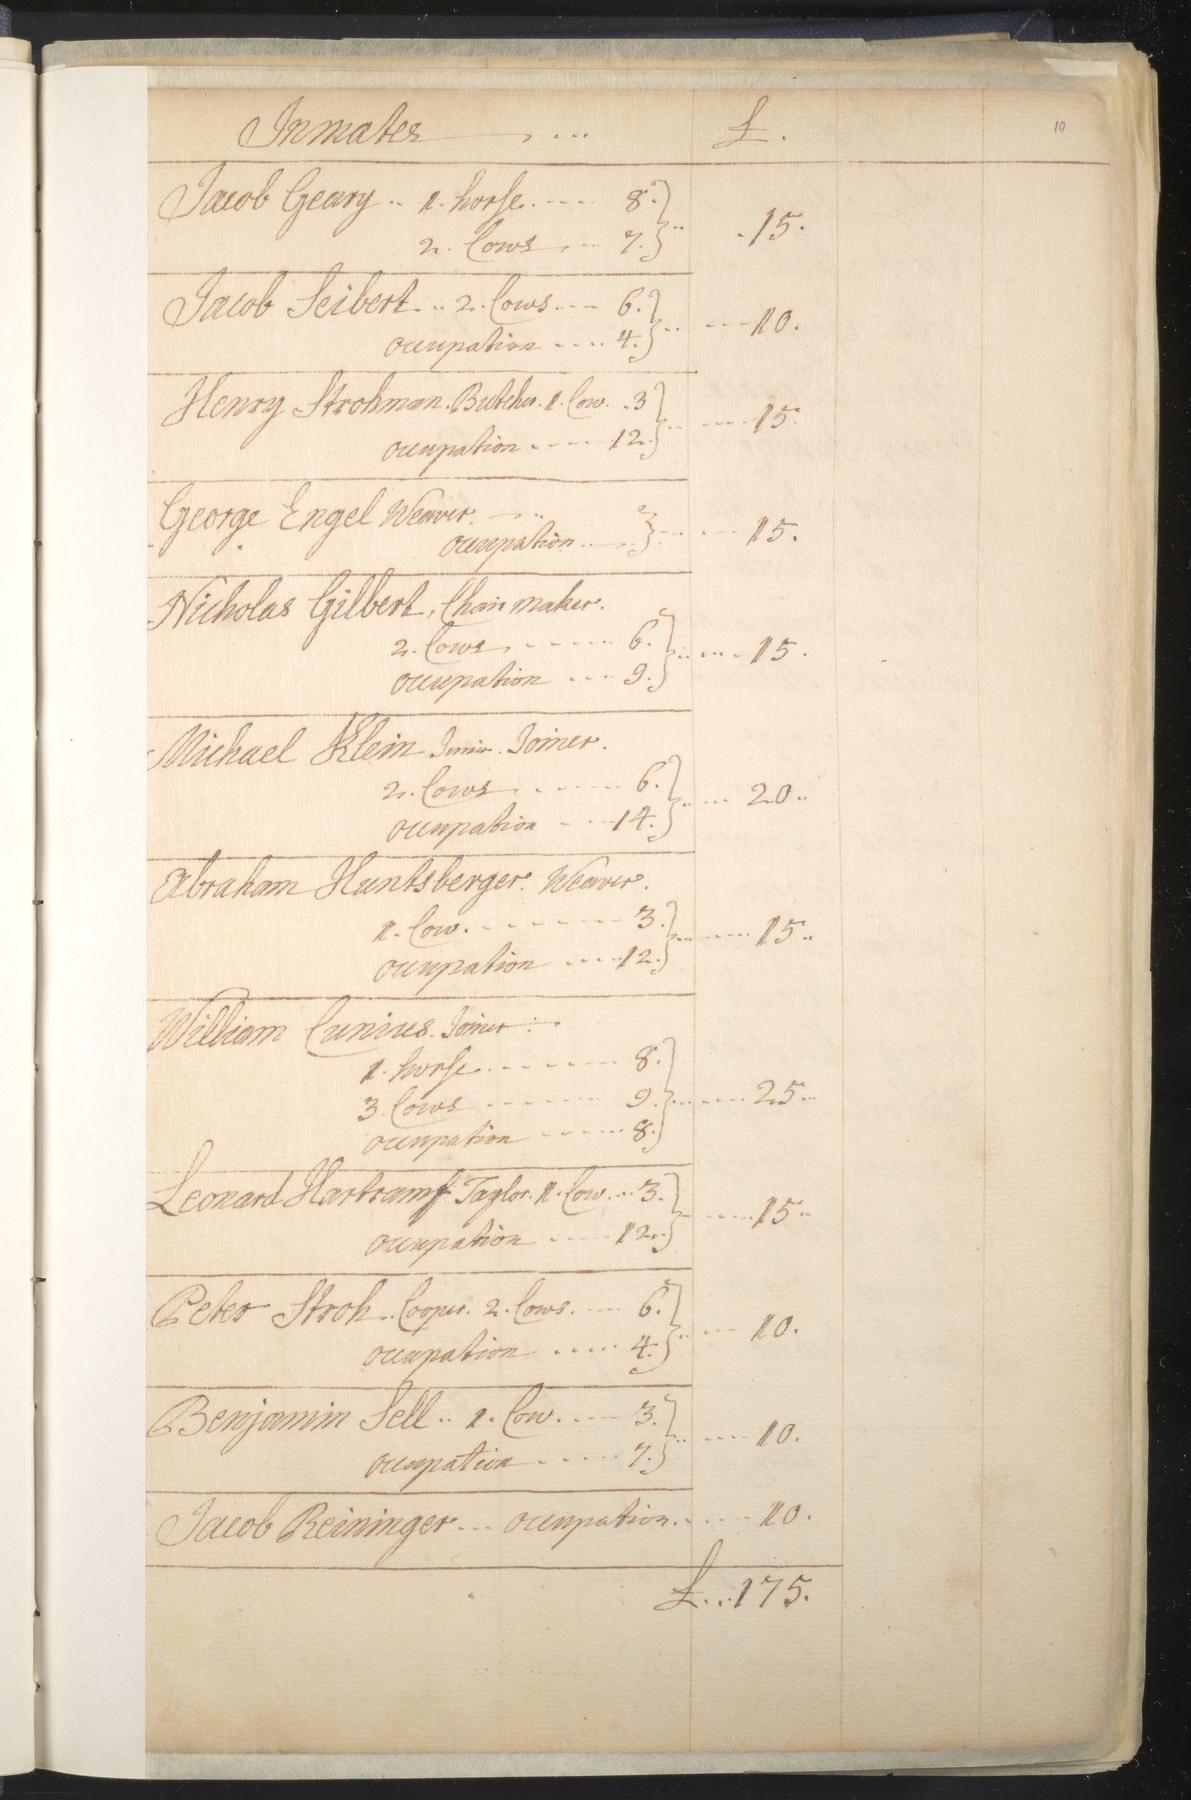 Inmates £.
10
Jacob Geary .. 1. horse. ---- 8. } .. .15.
2. Cows ---- 7. }
Jacob Seibert .. 2. Cows ---- 6. } .. ---- 10.
occupation .... 4. }
Henry Strohman. Butcher. 1. Cow. .3 } .. ---- 15.
occupation ---- 12. }
George Engel Weaver. ---- } .. ---- 15.
occupation ---- }
Nicholas Gilbert, Chair maker.
2. Cows ---- 6. } .. ---- 15.
occupation ---- 9. }
Michael Klein Junior. Joiner.
2. Cows ---- 6. } .. ---- 20..
occupation ---- 14. }
Abraham Huntsberger. Weaver.
1. Cow. ---- 3. } .. ---- 15..
occupation ---- 12. }
William Cunius. Joiner.
1. horse ---- 8. }
3. Cows ---- 9. } .. ---- 25..
occupation ---- 8. }
Leonard Hartramf Taylor. 1. Cow. .. 3. } ---- 15..
occupation ---- 12. }
Peter Stroh. Cooper. 2. Cows. ---- 6. } .. ---- 10.
occupation ---- 4. }
Benjamin Sell .. 1. Cow. ---- 3. } .. ---- 10.
occupation ---- 7. }
Jacob Reininger ... occupation. ---- 10.
£...175.